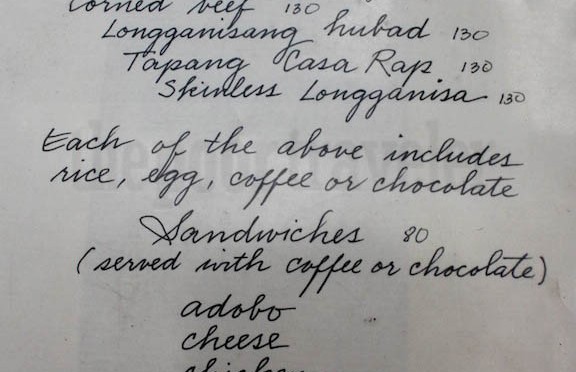 Corned beef 130
Longganisang hubad 130
Tapang Casa Rap 130
Skinless Longganisa 130
Each of the above includes
rice, egg, coffee or chocolate
Sandwiches 80
(served with coffee or chocolate)
adobo
cheese
chicken